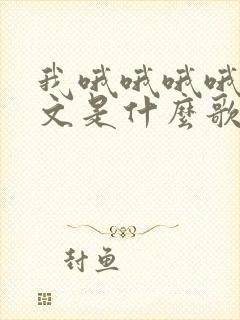 我哦哦哦哦
文是什麼歌
封魚